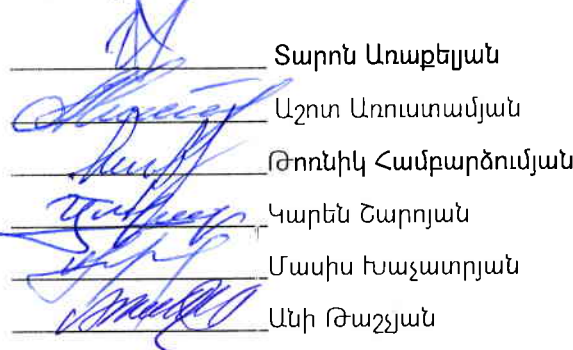 Տարոն Առաքելյան
Աշոտ Առուստամյան
Թոռնիկ Համբարձումյան
Կարեն Շարոյան
Մասիս Խաչատրյան
Անի Թաշչյան